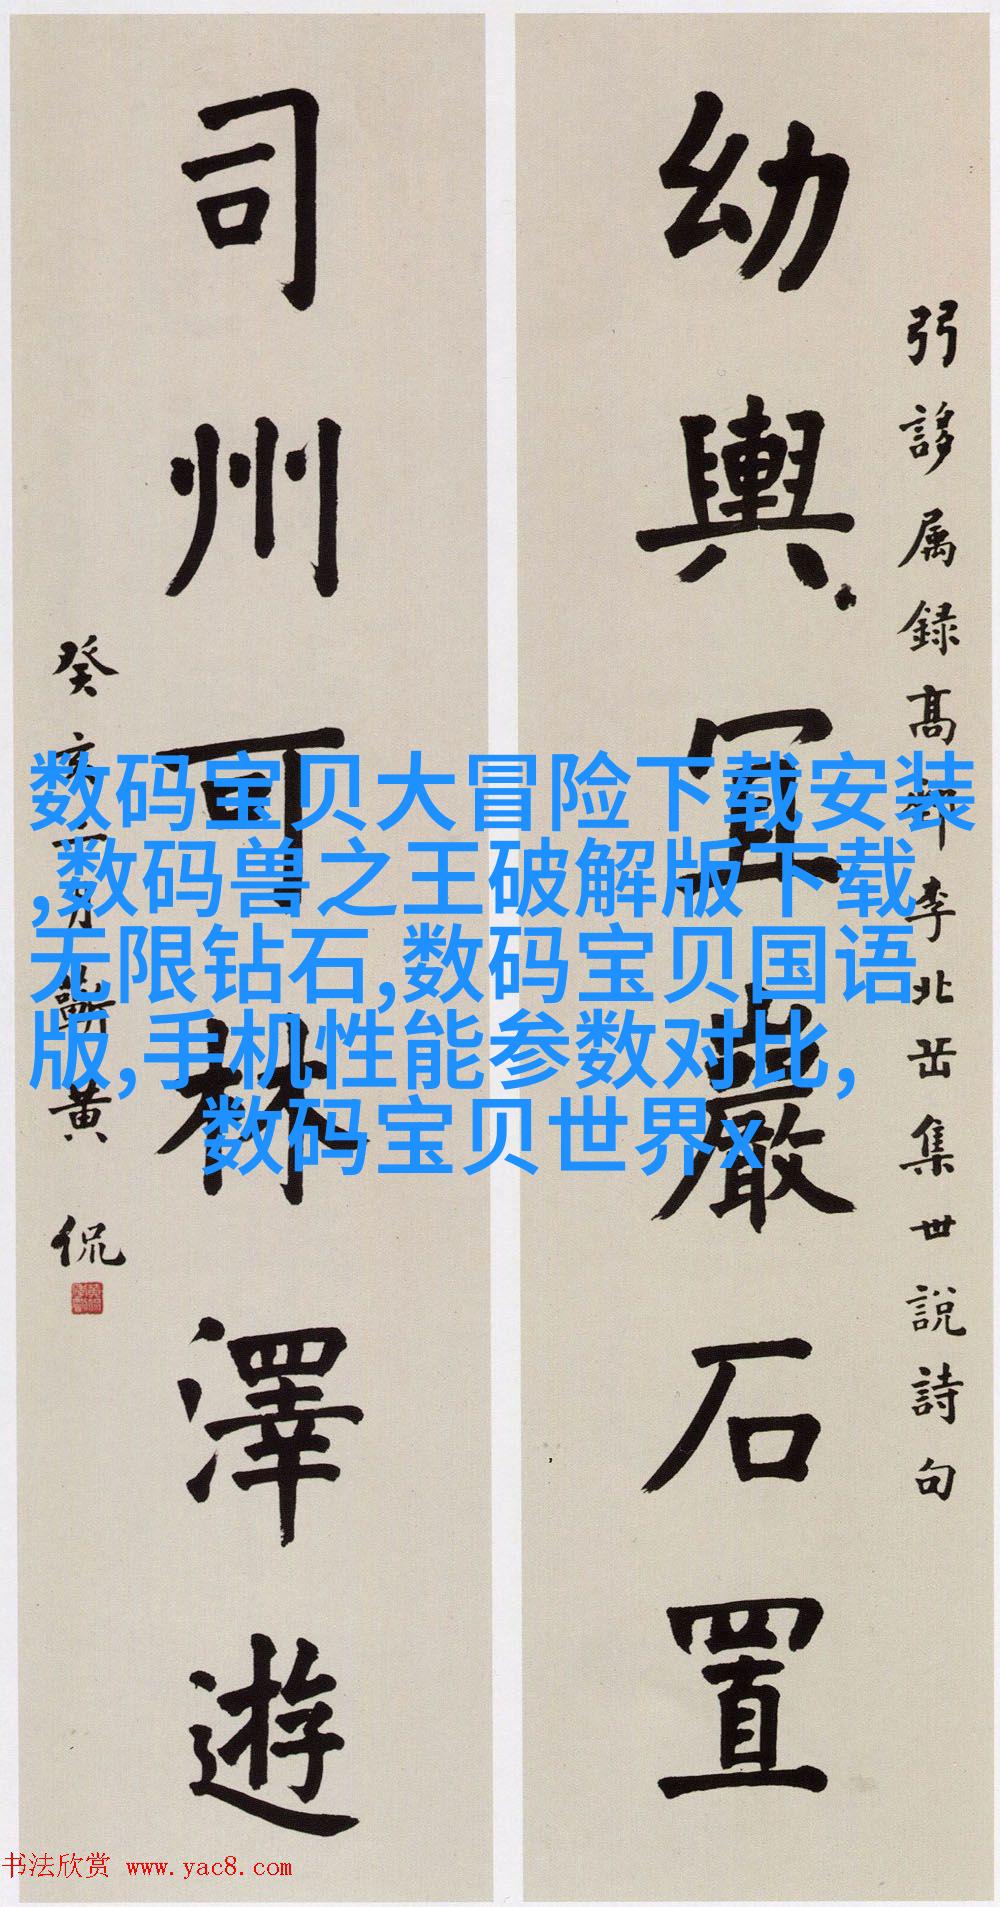 弜誃属録高郵李北集世說詩句
幼輿宜巖石置
司州可林澤遊
癸亥月蘄黄侃
数码宝贝大冒险下载安装
,数码兽之王破解版下载
无限钻石,数码宝贝国语
版,手机性能参数对比,
数码宝贝世界x
书法欣赏 www.yac8.com